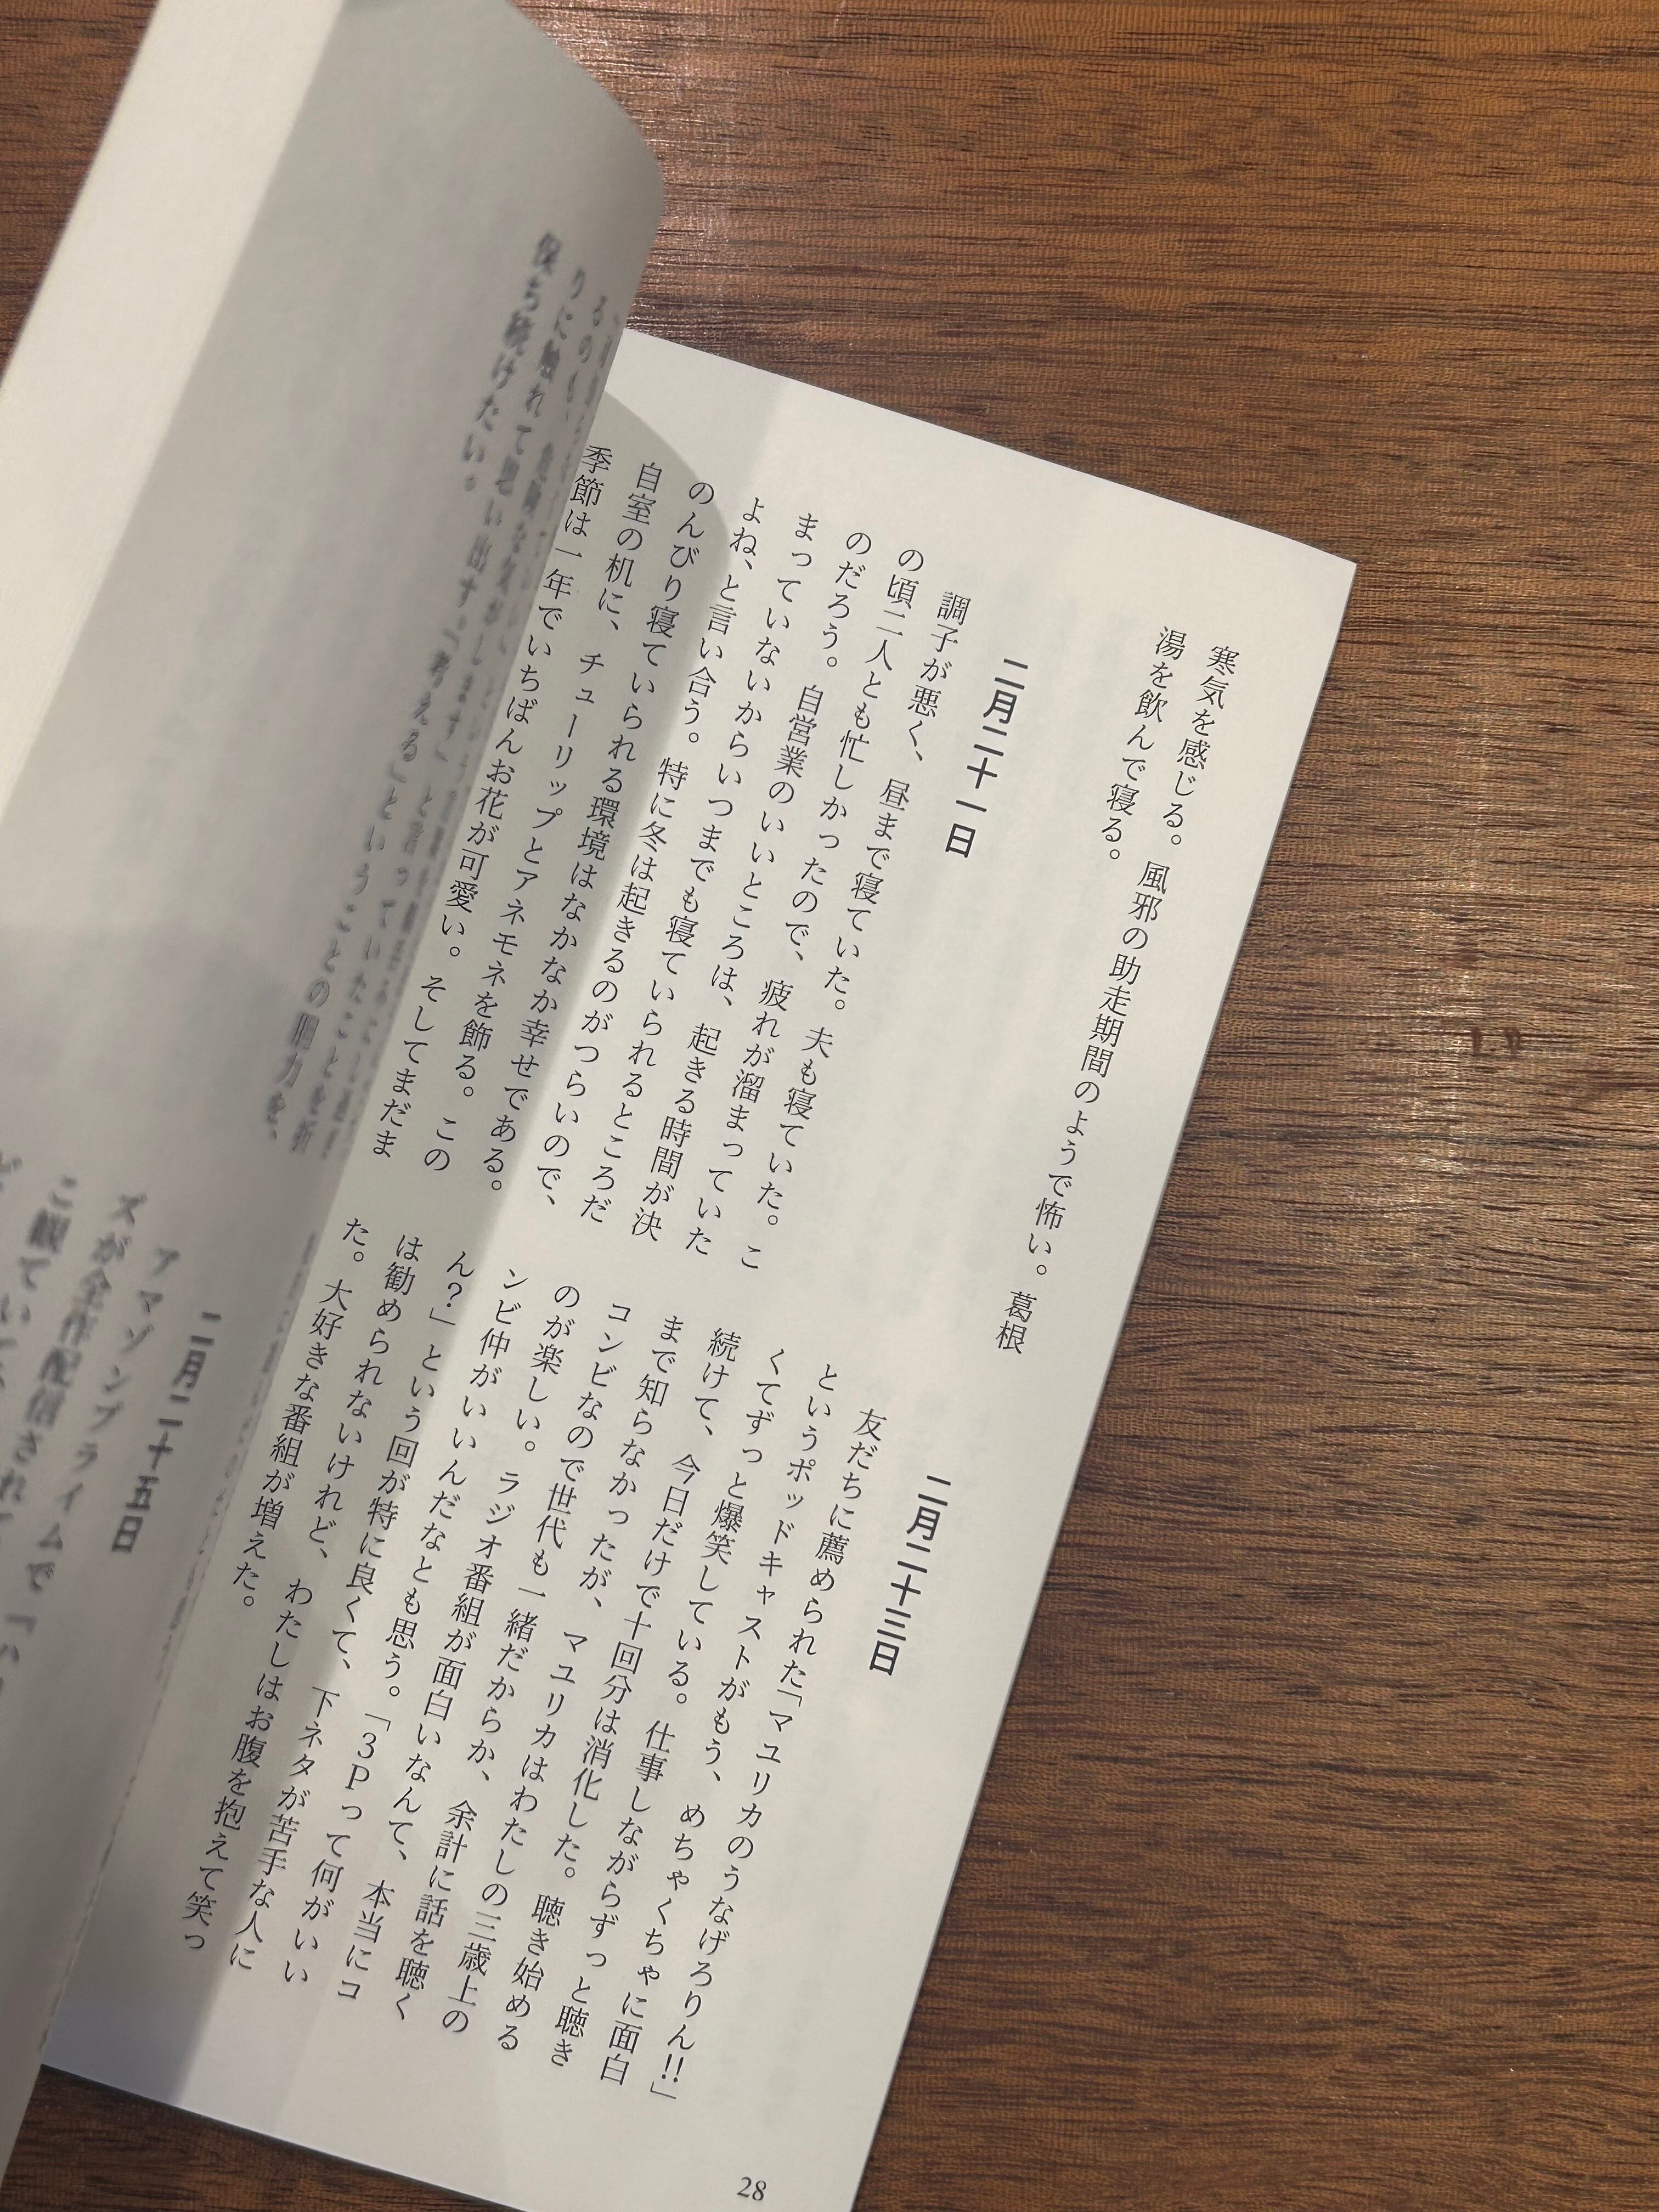 寒気を感じる。風邪の助走期間のようで怖い。葛根
湯を飲んで寝る。
二月二十一日
調子が悪く、昼まで寝ていた。夫も寝ていた。こ
の頃二人とも忙しかったので、疲れが溜まっていた
のだろう。自営業のいいところは、起きる時間が決
まっていないからいつまでも寝ていられるところだ
よね、と言い合う。特に冬は起きるのがつらいので、
のんびり寝ていられる環境はなかなか幸せである。
自室の机に、チューリップとアネモネを飾る。この
季節は一年でいちばんお花が可愛い。そしてまだま
二月二十三日
友だちに薦められた「マユリカのうなげろりん!!」
というポッドキャストがもう、めちゃくちゃに面白
くてずっと爆笑している。仕事しながらずっと聴き
続けて、今日だけで十回分は消化した。聴き始める
まで知らなかったが、マユリカはわたしの三歳上の
コンビなので世代も一緒だからか、余計に話を聴く
のが楽しい。ラジオ番組が面白いなんて、本当にコ
ンビ仲がいいんだなとも思う。「3Pって何がいい
ん?」という回が特に良くて、下ネタが苦手な人に
は勧められないけれど、わたしはお腹を抱えて笑っ
た。大好きな番組が増えた。
28
気がします」と言っていたことを折
りに触れて思い出す。「考える」ということの胆力を、
保ち続けたい。
二月二十五日
アマゾンプライムで『ハ
ズが全作配信されて